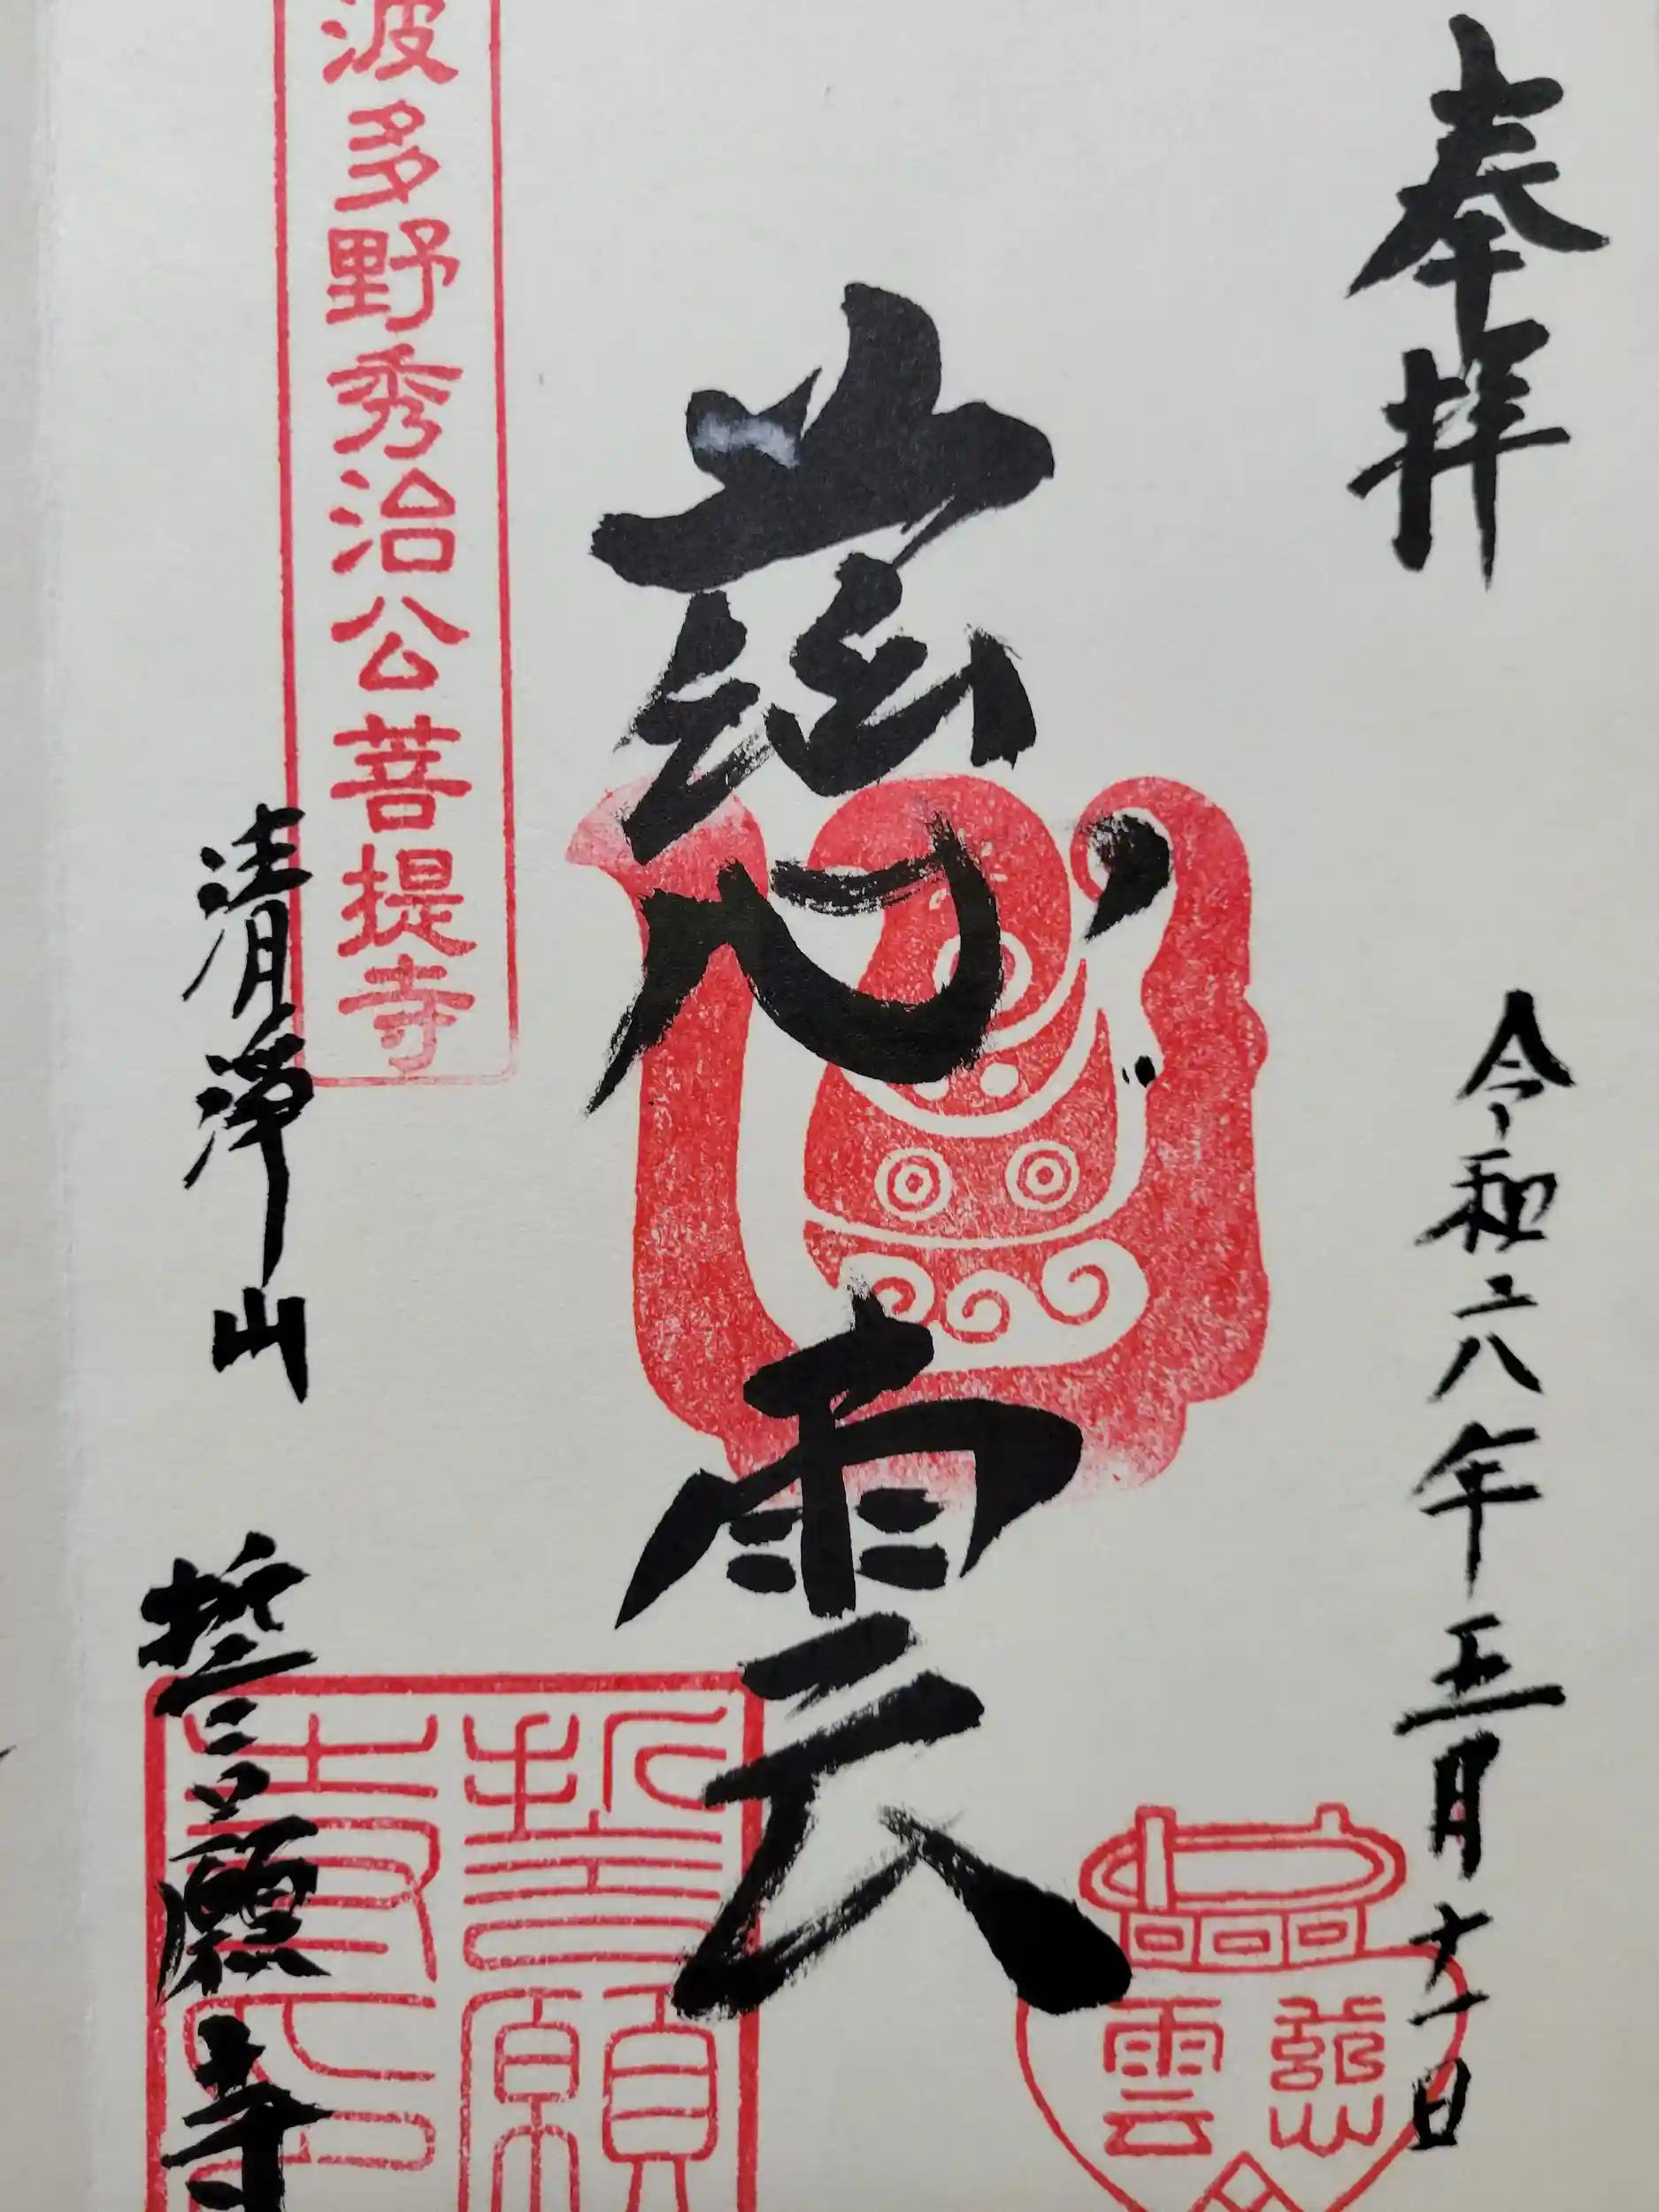 奉拝
令和六年五月十一日
慈雲
慈雲
波多野秀治公菩提寺
清浄山
誓願寺
誓願寺印